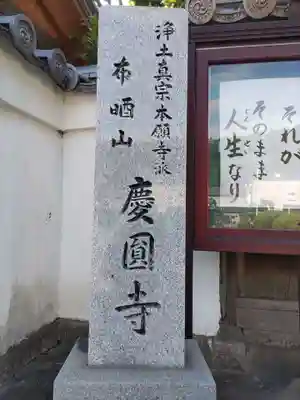 浄土真宗本願寺派
布晒山
慶圓寺
それが
そのまま
人生なり